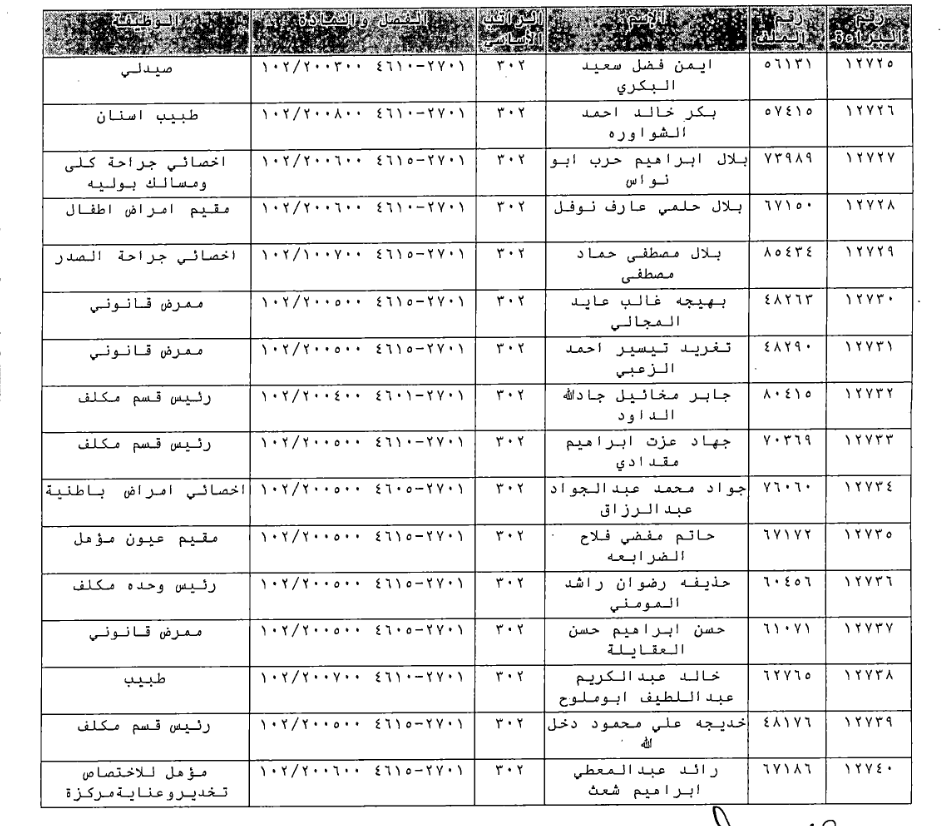 رقم البراءة رقم الملف الاسم الراتب الأساسي الفصل والمادة الوظيفة
١٢٧٢٥ ٥٦١٣١ ايمن فضل سعيد ٣٠٢ ٢٧٠١-٤٦١٠ ١٠٢/٢٠٠٣٠٠ صيدلي
البكري
١٢٧٢٦ ٥٧٤١٥ بكر خالد احمد ٣٠٢ ٢٧٠١-٤٦١٠ ١٠٢/٢٠٠٨٠٠ طبيب اسنان
الشواوره
١٢٧٢٧ ٧٣٩٨٩ بلال ابراهيم حرب ابو ٣٠٢ ٢٧٠١-٤٦١٥ ١٠٢/٢٠٠٦٠٠ اخصائي جراحة كلى
نواس ومسالك بوليه
١٢٧٢٨ ٦٧١٥٠ بلال حلمي عارف نوفل ٣٠٢ ٢٧٠١-٤٦١٠ ١٠٢/٢٠٠٦٠٠ مقيم امراض اطفال
١٢٧٢٩ ٨٥٤٣٤ بلال مصطفى حماد ٣٠٢ ٢٧٠١-٤٦١٥ ١٠٢/١٠٠٧٠٠ اخصائي جراحة الصدر
مصطفى
١٢٧٣٠ ٤٨٢٦٣ بهيجه غالب عايد ٣٠٢ ٢٧٠١-٤٦١٥ ١٠٢/٢٠٠٥٠٠ ممرض قانوني
المجالي
١٢٧٣١ ٤٨٢٩٠ تغريد تيسير احمد ٣٠٢ ٢٧٠١-٤٦١٥ ١٠٢/٢٠٠٥٠٠ ممرض قانوني
الزعبي
١٢٧٣٢ ٨٠٤١٥ جابر مخائيل جادالله ٣٠٢ ٢٧٠١-٤٦٠١ ١٠٢/٢٠٠٤٠٠ رئيس قسم مكلف
الداود
١٢٧٣٣ ٧٠٣٦٩ جهاد عزت ابراهيم ٣٠٢ ٢٧٠١-٤٦١٥ ١٠٢/٢٠٠٥٠٠ رئيس قسم مكلف
مقدادي
١٢٧٣٤ ٧٦٠٦٠ جواد محمد عبدالجواد ٣٠٢ ٢٧٠١-٤٦٠٥ ١٠٢/٢٠٠٥٠٠ اخصائي امراض باطنية
عبدالرزاق
١٢٧٣٥ ٦٧١٧٢ حاتم مفضي فلاح ٣٠٢ ٢٧٠١-٤٦١٥ ١٠٢/٢٠٠٥٠٠ مقيم عيون مؤهل
الضرابعه
١٢٧٣٦ ٦٠٤٥٦ حذيفه رضوان راشد ٣٠٢ ٢٧٠١-٤٦١٥ ١٠٢/٢٠٠٥٠٠ رئيس وحده مكلف
المومني
١٢٧٣٧ ٦١٠٧١ حسن ابراهيم حسن ٣٠٢ ٢٧٠١-٤٦٠٥ ١٠٢/٢٠٠٥٠٠ ممرض قانوني
العقايلة
١٢٧٣٨ ٦٢٧٦٥ خالد عبدالكريم ٣٠٢ ٢٧٠١-٤٦١٠ ١٠٢/٢٠٠٧٠٠ طبيب
عبداللطيف ابوملوح
١٢٧٣٩ ٤٨١٧٦ خديجه علي محمود دخل ٣٠٢ ٢٧٠١-٤٦١٥ ١٠٢/٢٠٠٥٠٠ رئيس قسم مكلف
الله
١٢٧٤٠ ٦٧١٨٦ رائد عبدالمعطي ٣٠٢ ٢٧٠١-٤٦١٥ ١٠٢/٢٠٠٦٠٠ مؤهل للاختصاص
ابراهيم شعث تخديروعنايةمركزة